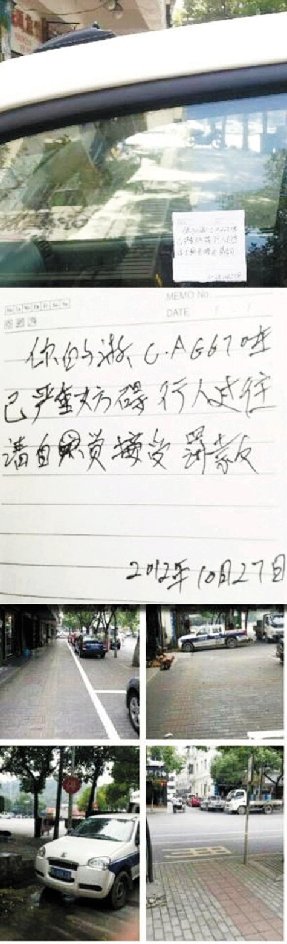 MEMO No.
DATE / /
你的浙 C.AG67
已严重妨碍 行人过往
请自 接受 罚款
2012年10月27日